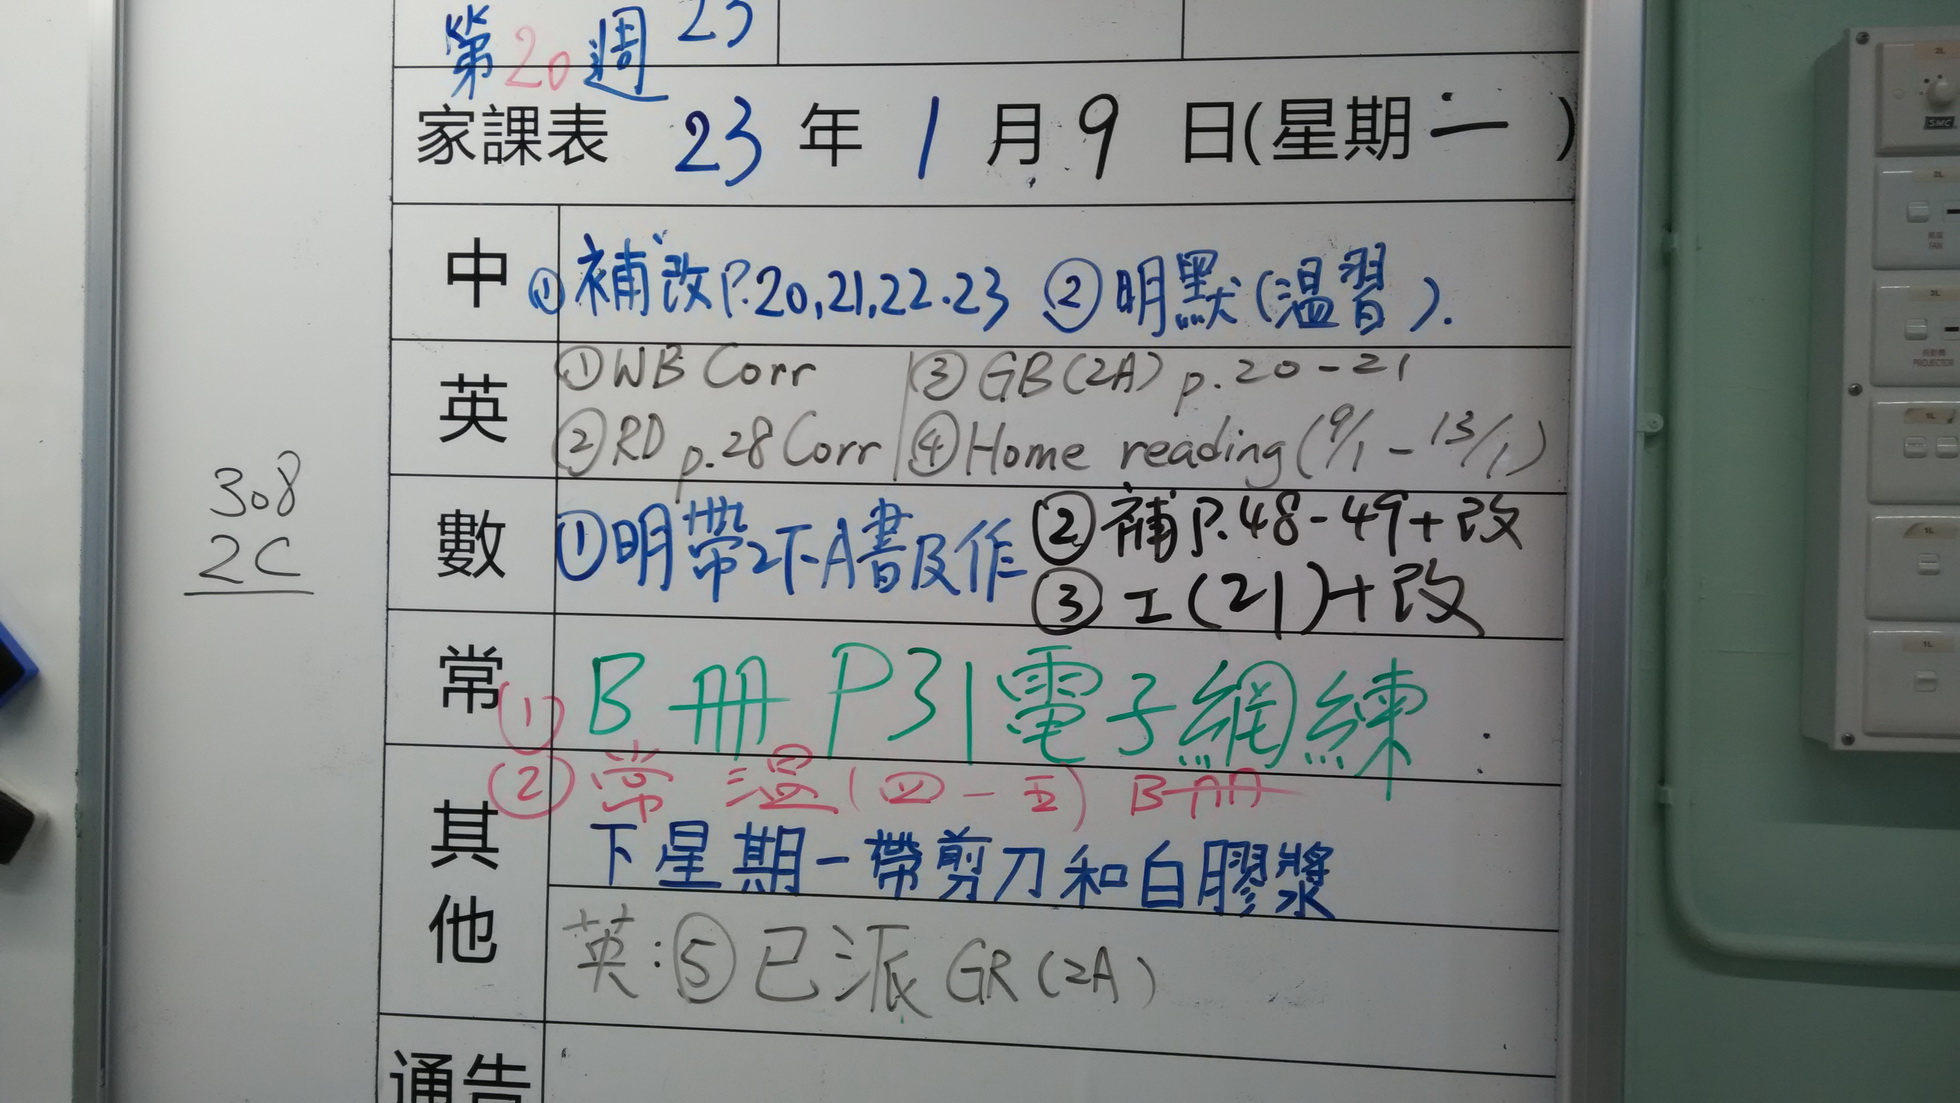 第20週 23
家課表 23 年 1 月 9 日(星期 一 )
中 ①補改P.20,21,22.23 ②明默(溫習).
英 ①WB Corr ③GB(2A) p.20-21
②RD p.28 Corr ④Home reading (9/1 - 13/1)
308
2C
數 ①明帶2下A書及作 ②補P.48-49+改
③工(21)+改
常 ① B冊 P31電子網練
② 常溫(四-五) B冊
其他 下星期一帶剪刀和白膠漿
英:⑤已派GR(2A)
通告
SMC
FAN
PROJECTOR